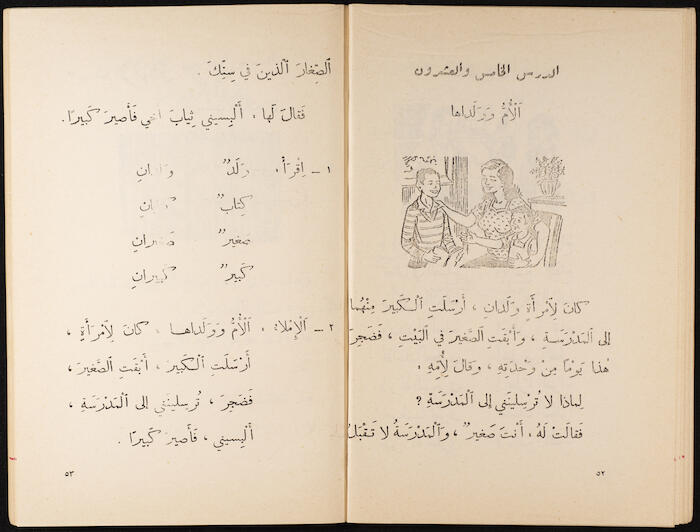 الدرس الخامس والعشرون
اَلْأُمُّ وَوَلَداها
كانَ لِامْرَأَةٍ وَلَدانِ ، أَرْسَلَتِ ٱلْكَبيرَ مِنْهُما
إلى ٱلمَدْرَسَةِ ، وَأَبْقَتِ ٱلصَّغيرَ في ٱلبَيْتِ ، فَضَجِرَ
هٰذا يَوْمًا مِنْ وَحْدَتِهِ ، وَقالَ لِأُمِّهِ :
لِماذا لا تُرْسِلينَني إلى ٱلمَدْرَسَةِ ؟
فَقالَتْ لَهُ : أَنْتَ صَغيرٌ ، وَٱلْمَدْرَسَةُ لا تَقْبَلُ
٥٢
ٱلصِّغارَ ٱلَّذينَ في سِنِّكَ .
فَقالَ لَها : أَلْبِسيني ثِيابَ أَخي فَأَصيرَ كَبيرًا .
١ – اِقْرَأْ : وَلَدٌ وَلَدانِ
كِتابٌ كِتابانِ
صَغيرٌ صَغيرانِ
كَبيرٌ كَبيرانِ
٢ – اَلْإِمْلاءُ : اَلْأُمُّ وَوَلَداهـا : كانَ لِامْرَأَةٍ ،
أَرْسَلَتِ ٱلْكَبيرَ ، أَبْقَتِ ٱلصَّغيرَ ،
فَضَجِرَ ، تُرْسِلينَني إلى ٱلْمَدْرَسَةِ ،
أَلْبِسيني ، فَأَصيرَ كَبيرًا .
٥٣